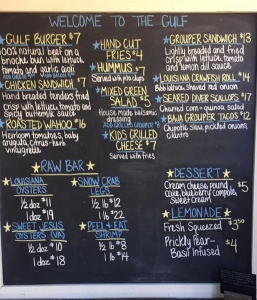 WELCOME TO THE GULF
GULF BURGER $7
100% natural beef on a
brioche bun with lettuce
tomato and garlic aioli
CHICKEN SANDWICH $7
Hand breaded tenders fried
crisp with lettuce, tomato and
spicy buttermilk sauce
ROASTED WAHOO $16
Heirloom tomatoes, baby
arugula, citrus-herb
vinaigrette
HAND CUT
FRIES $4
HUMMUS $7
Served with pita chips
MIXED GREEN
SALAD $5
House made balsamic
dressing
ADD GRILLED GROUPER
KIDS GRILLED
CHEESE $7
Served with fries
GROUPER SANDWICH $13
Lightly breaded and fried
crisp with lettuce, tomato
and lemon dill sauce
LOUISIANA CRAWFISH ROLL $14
Bibb lettuce, shaved red onion
SEARED DIVER SCALLOPS $17
Charred corn-quinoa salad
BAJA GROUPER TACOS $12
Chipotle slaw, pickled onions,
cilantro
RAW BAR
LOUISIANA
OYSTERS
1/2 doz $11
1 doz $19
SWEET JESUS
OYSTERS (VA)
1/2 doz $10
1 doz $18
SNOW CRAB
LEGS
1/2 lb $12
1 lb $22
PEEL & EAT
SHRIMP
1/2 lb $8
1 lb $14
DESSERT
Cream cheese pound $5
cake, blueberry compote,
sweet cream
LEMONADE
Fresh Squeezed $3.50
Prickly Pear- $4
Basil Infused